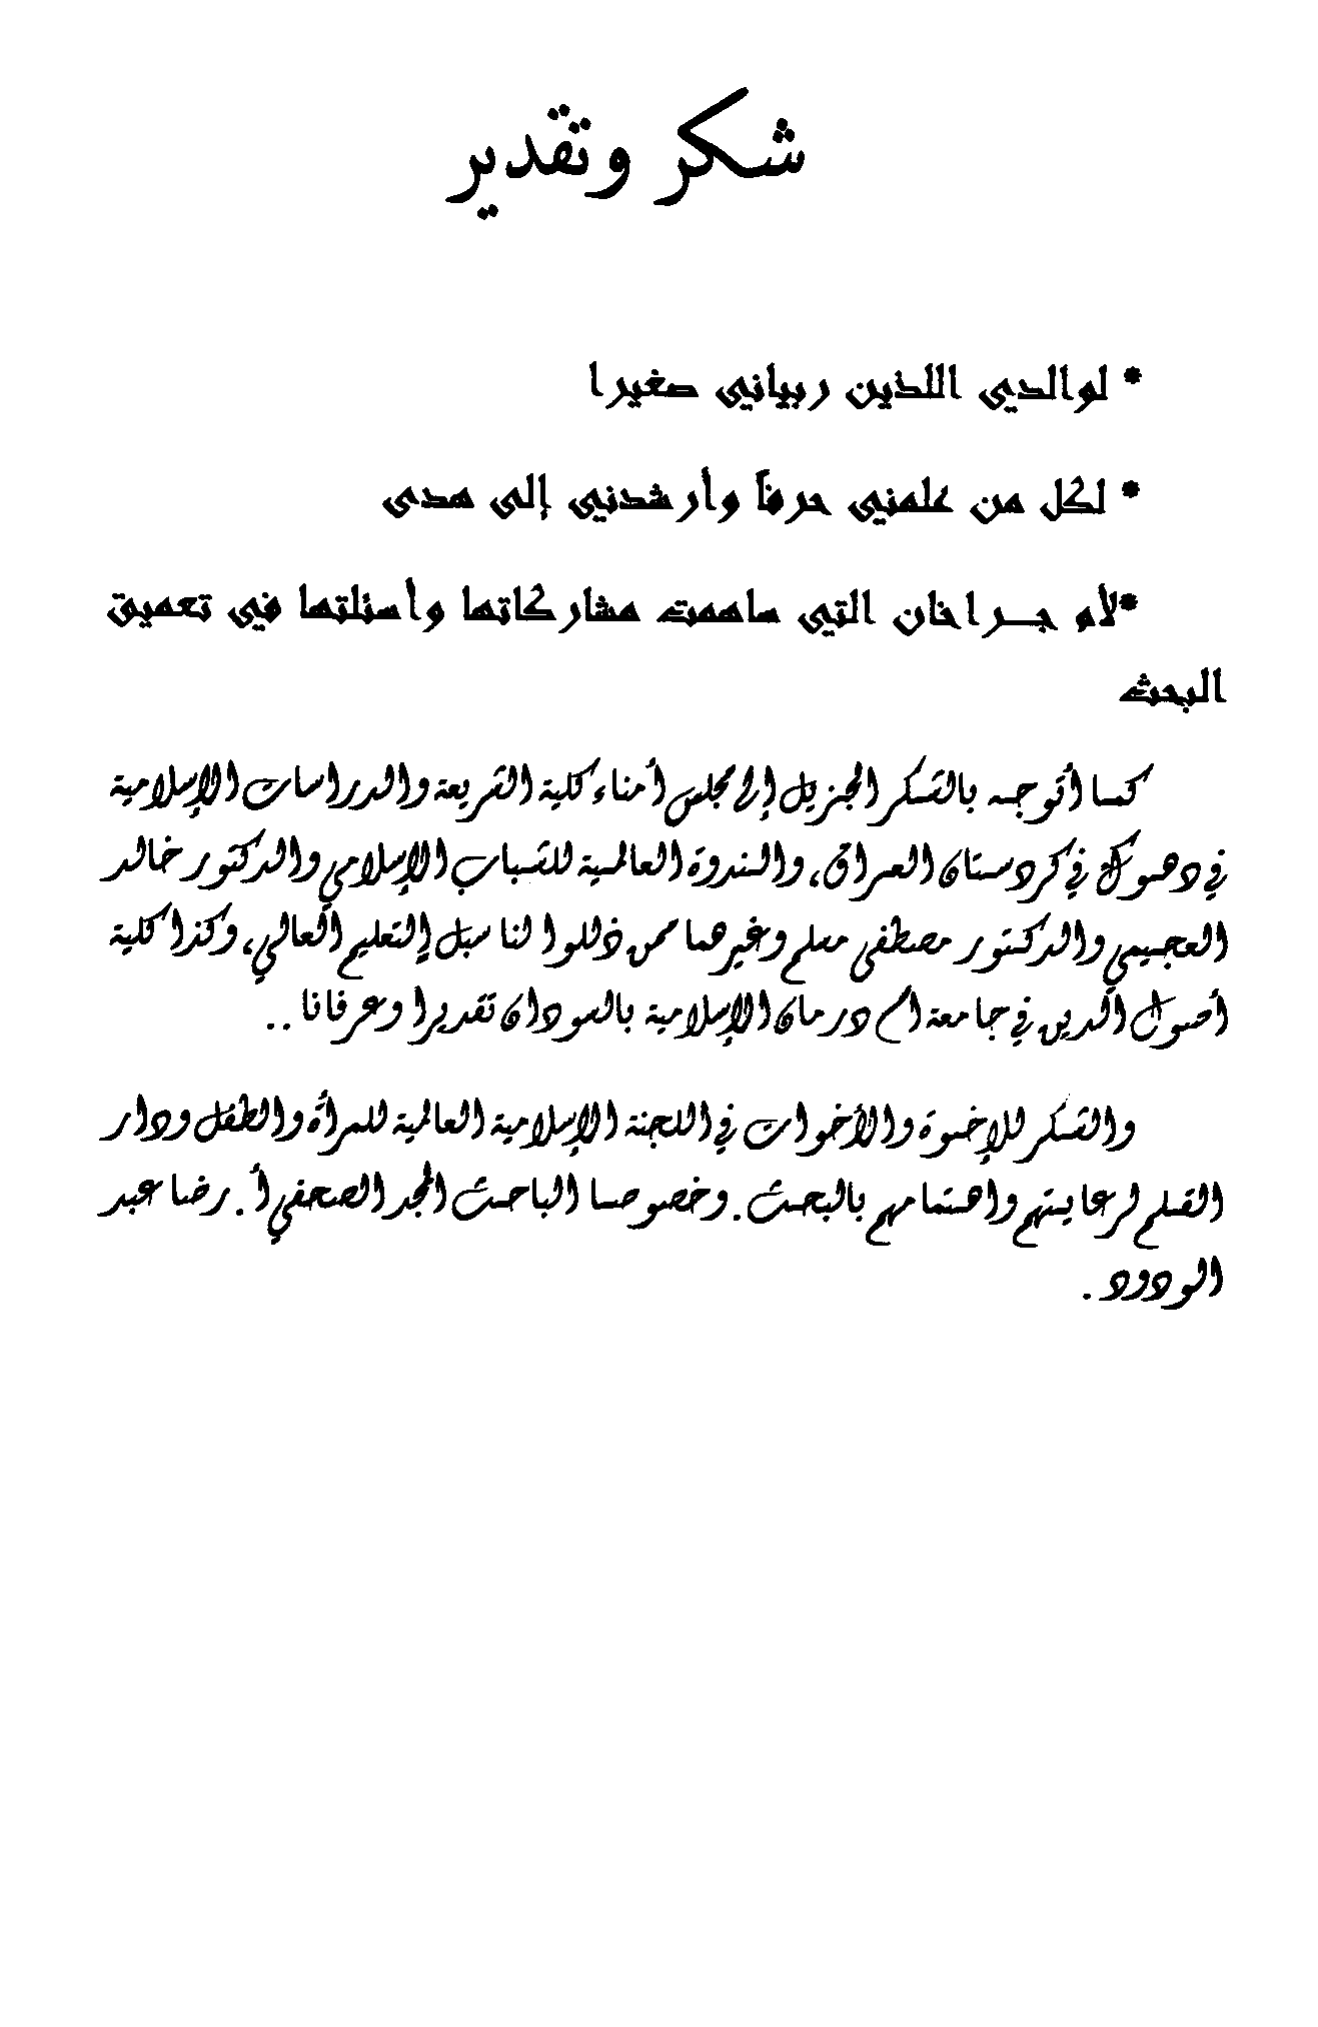 شكر وتقدير
* لوالدي اللذين ربياني صغيرا
* لكل من علمني حرفاً وأرشدني إلى هدى
*لأم جراخان التي ساهمت مشاركاتها وأسئلتها في تعميق
البحث
كما أتوجه بالشكر الجزيل إلى مجلس أمناء كلية الشريعة والدراسات الإسلامية
في دهوك في كردستان العراق، والندوة العالمية للشباب الإسلامي والدكتور خالد
العجيمي والدكتور مصطفى مسلم وغيرهما ممن ذللوا لنا سبل التعليم العالي، وكذا كلية
أصول الدين في جامعة أم درمان الإسلامية بالسودان تقديرا وعرفانا ..
والشكر للإخوة والأخوات في اللجنة الإسلامية العالمية للمرأة والطفل ودار
القلم لرعايتهم واهتمامهم بالبحث. وخصوصا الباحث المجد الصحفي أ. رضا عبد
الودود .